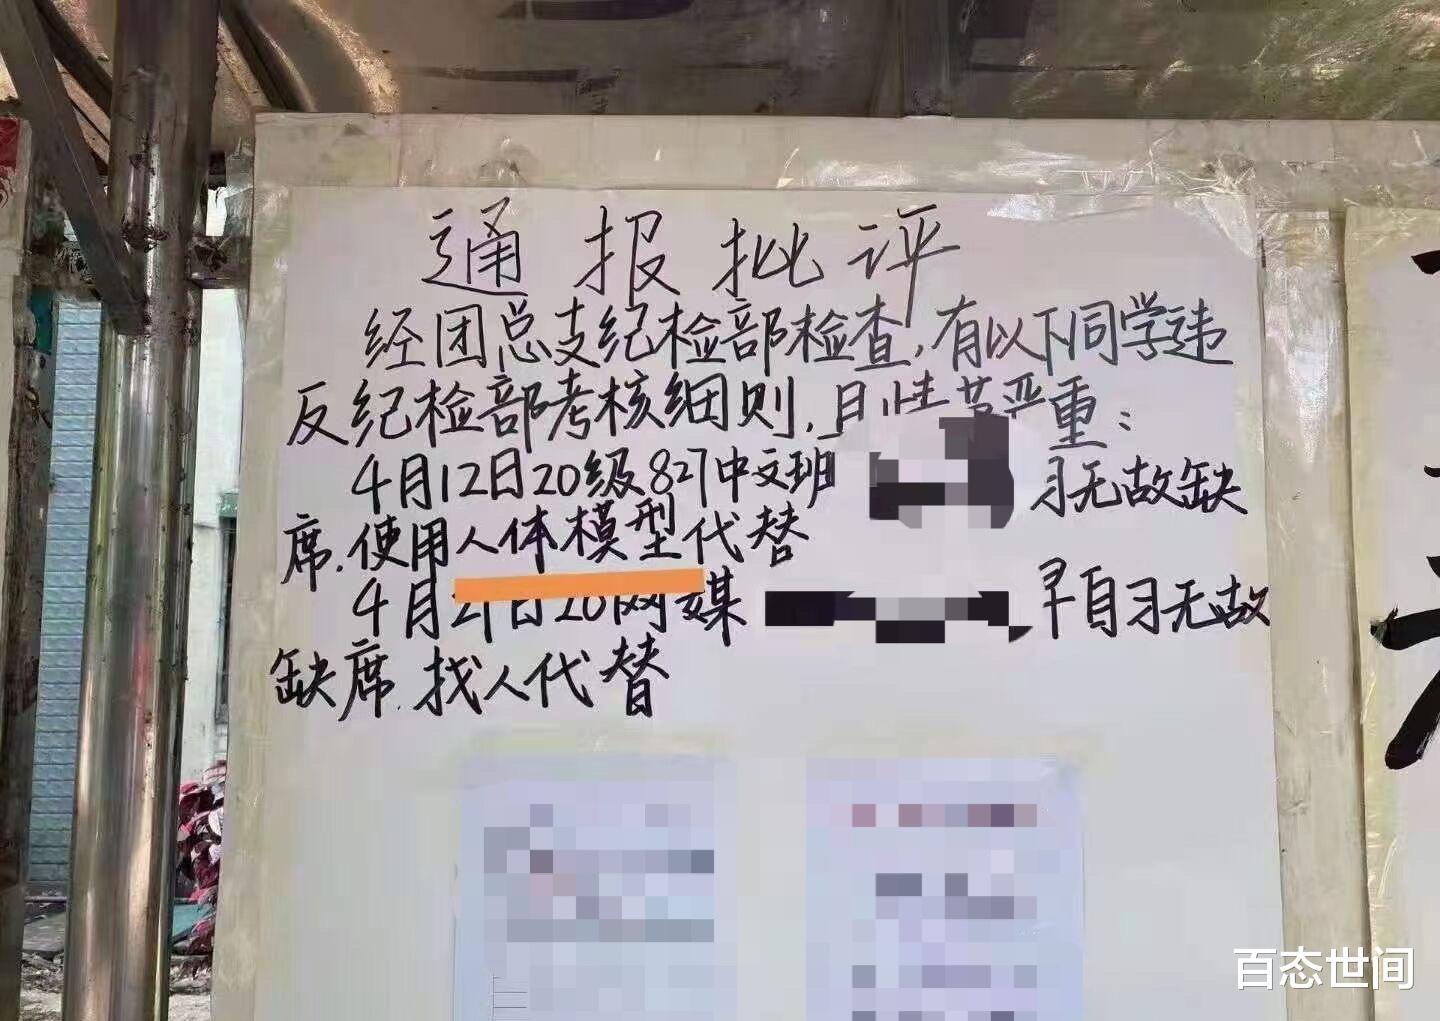 通报批评
经团总支纪检部检查,有以下同学违
反纪检部考核细则,且情节严重:
4月12日20级827中文班 习无故缺
席.使用人体模型代替
4月21日20网媒 早自习无故
缺席.找人代替
百态世间